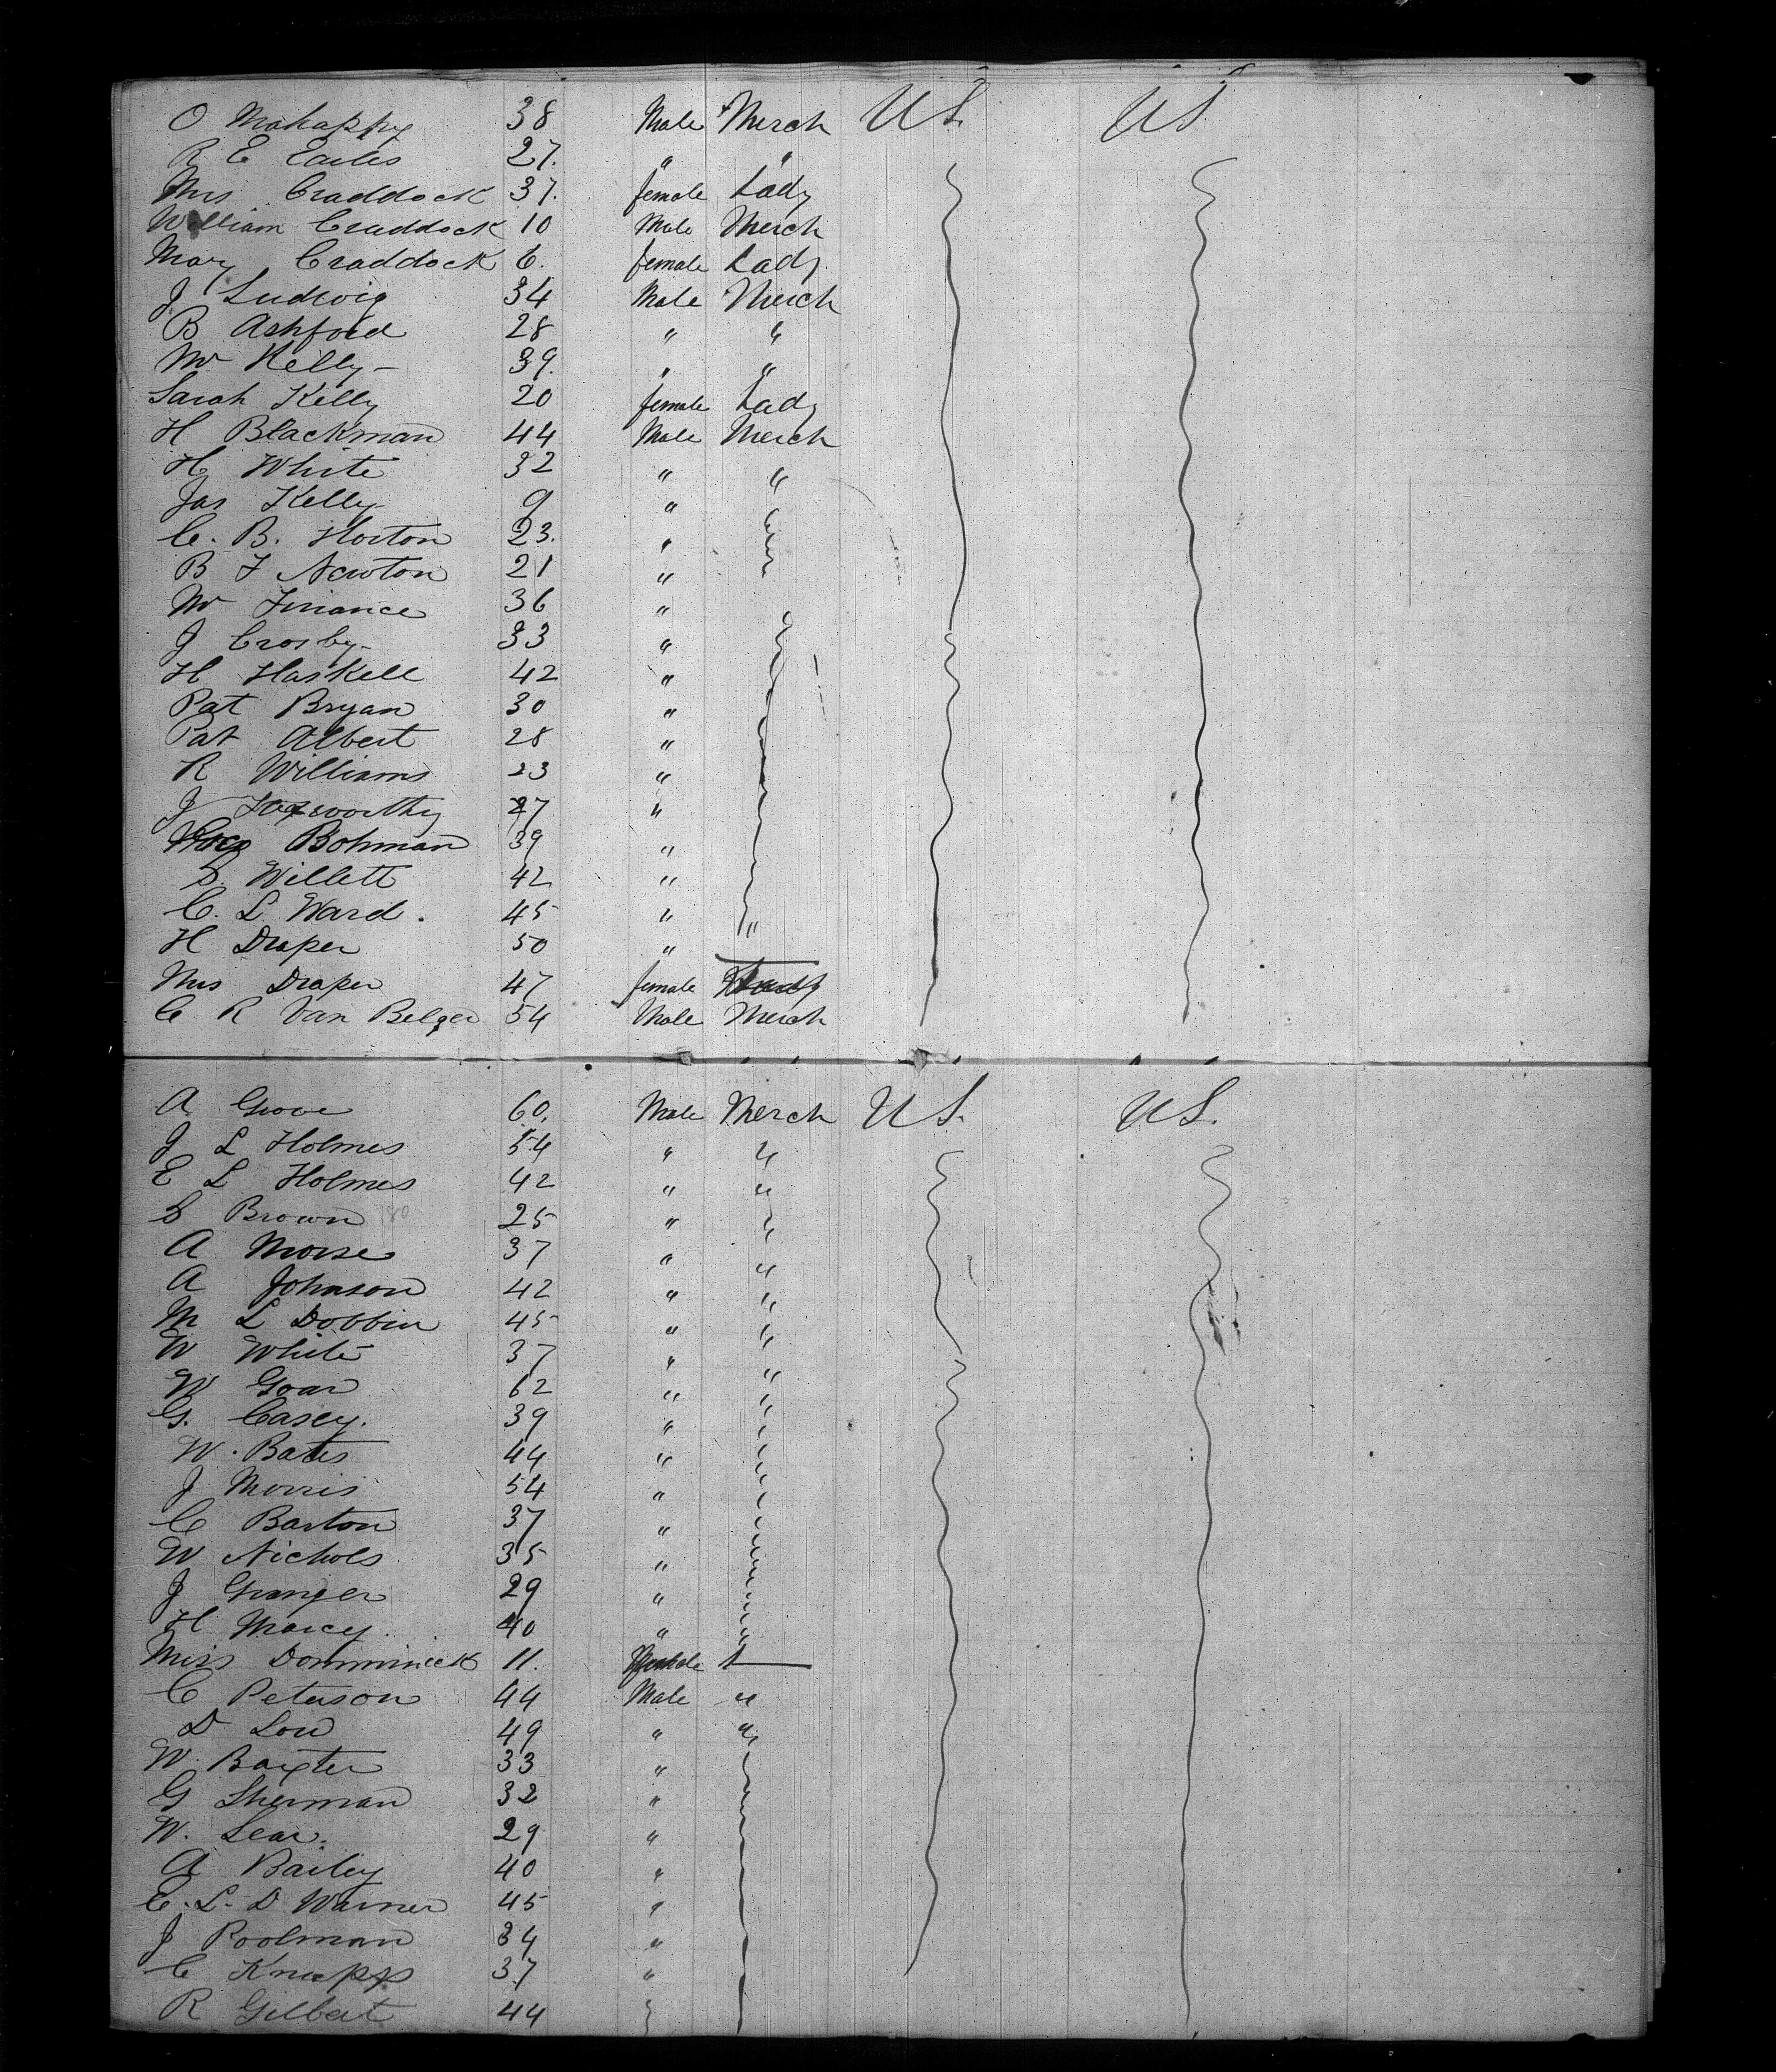 O Mahappy 38 Male Merch US. US
R E Earles 27. " "
Mrs Craddock 37. female Lady
William Craddock 10 Male Merch
Mary Craddock 6. female Lady
J Ludwig 34 Male Merch
B Ashford 28 " "
Mr Kelly 39. " "
Sarah Kelly 20 female Lady
H Blackman 44 Male Merch
H White 32 " "
Jas Kelly 9 "
C. B. Horton 23. "
B F Newton 21 "
Mr Finance 36 "
J Crosby 33 "
H Haskell 42 "
Pat Bryan 30 "
Pat Albert 28 "
R Williams 23 "
J Foxworthy 27 "
Bohman 39 "
S. Willett 42 "
C. L Ward. 45 " "
H Draper 50 "
Mrs Draper 47 female
C R Van Belger 54 Male Merch
A Grove 60. Male Merch US. US.
J L Holmes 54 " "
E L Holmes 42 " "
S Brown 80 25 " "
A Morse 37 " "
A Johnson 42 " "
M L Dobbin 45 " "
W White 37 " "
W Goar 62 " "
G. Casey. 39 " "
W. Bates 44 "
J Morris 54 "
C Barton 37 "
W Nichols 35 "
J Granger 29 "
H Marcy. 40 " "
Miss Domminick 11. female
C Peterson 44 Male "
D Low 49 " "
W. Baxter 33 "
G Sherman 32 "
W. Lear. 29 "
A Bailey 40 "
C. L. D Warner 45 "
J Poolman 34 "
C Knapp 37 "
R Gilbert 44